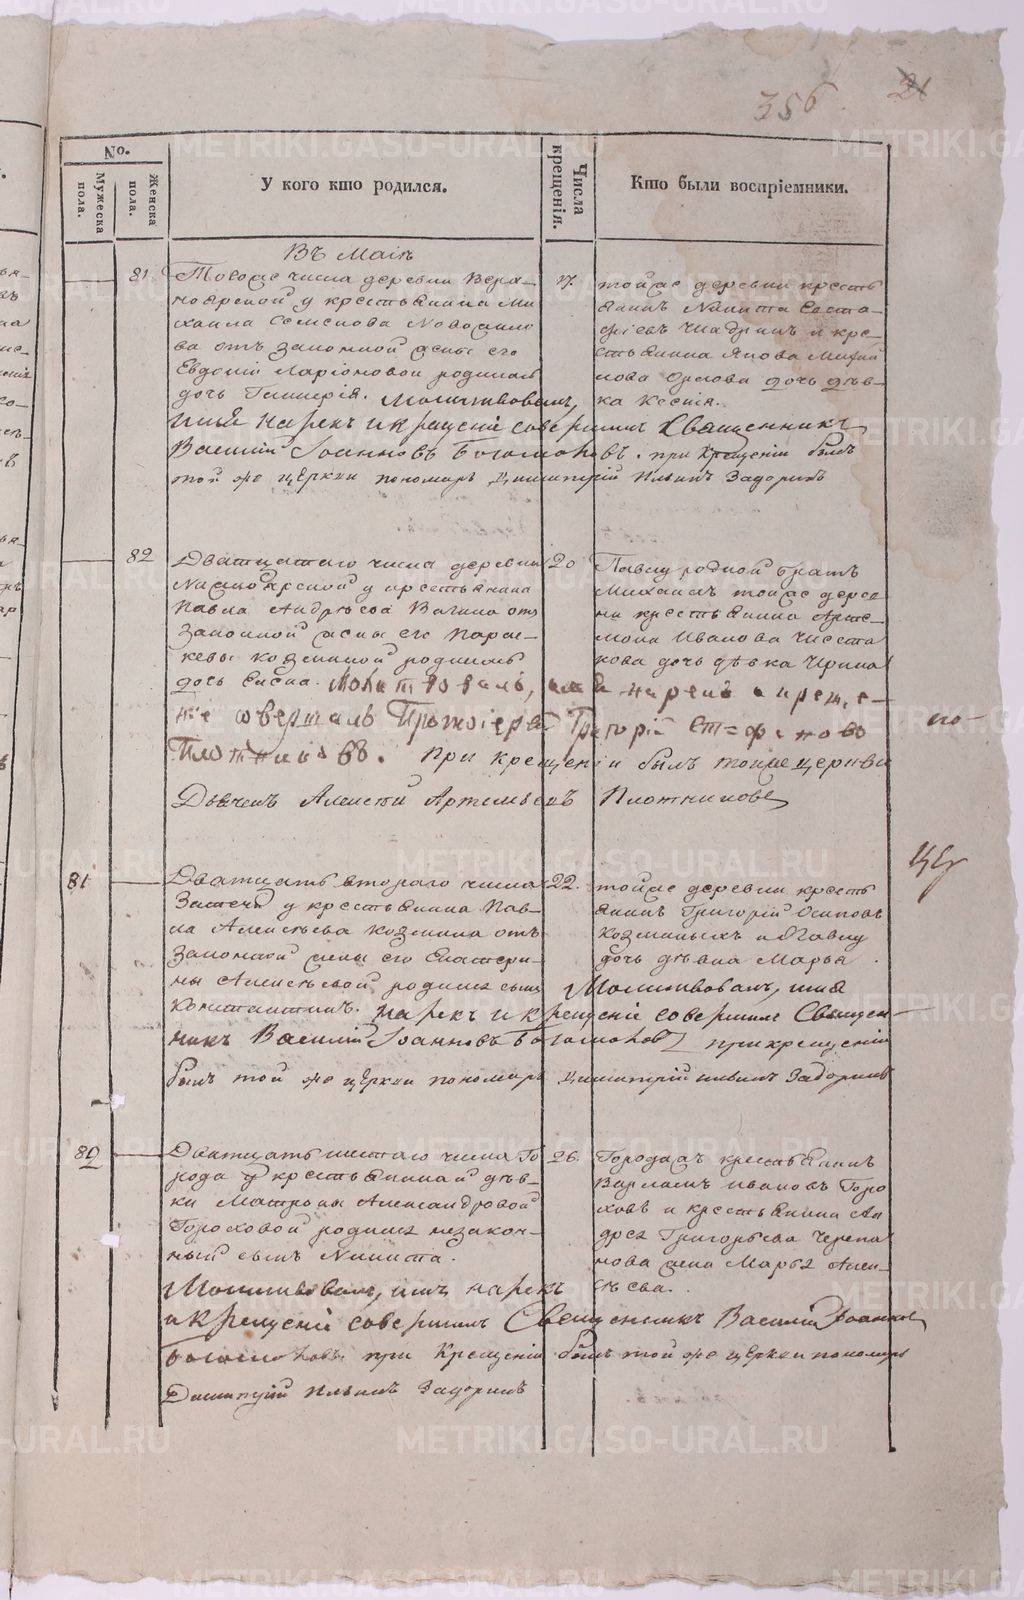 356
21
No.
Мужеска пола.
Женска пола.
У кого кто родился.
Числа крещенія.
Кто были воспріемники.
Въ Маіѣ
81
Тогоже числа деревни Верх-
ноярской у крестьянина Ми
хаила Семенова
ва отъ законной жены его
Евдокіи Ларіоновой родилась
дочь Гликерія. Молитвовалъ,
имя нарекъ и крещеніе совершилъ Священникъ
Василій Іоанновъ Богомоловъ. при крещеніи былъ
той же церкви пономарь Димитрій Ильинъ Задоринъ
17.
тойже деревни кресть
янинъ Никита Евста-
фіевъ и кре-
стьянина Якова
нова Орлова дочь дѣв-
ка Ксенія.
82
Дватцатаго числа деревни
у крестьянина
Павла Андрѣева Вагина отъ
законной жены его Парас-
кевы Козминой родилась
дочь Елена. Молитвовалъ, имя нарекъ и креще-
ніе совершалъ Протоіерей Григорій Стефановъ
Плотниковъ. При крещеніи былъ тойже церкви
Дьячекъ Алексей Артемьевъ Плотниковъ
20
Павлу родной братъ
Михаилъ тойже дерев
ни крестьянина Арте-
мона Иванова Чисста
кова дочь дѣвка Ирина
по-
81
Дватцать втораго числа
Затечи у крестьянина Пав-
ла Алексѣева Козмина отъ
законной жены его Екатери-
ны Алексѣевой родился сынъ
Константинъ. Молитвовалъ, имя
нарекъ и крещеніе совершилъ Священ-
никъ Василій Іоанновъ Богомоловъ при крещеніи
былъ той же церкви пономарь Димитрій Ильинъ Задоринъ
22.
тойже деревни кресть
янинъ Григорій Осиповъ
Козминыхъ и Павлу
дочь дѣвка Марья.
82
Дватцать шестаго числа Го
рода у крестьянской дѣв-
ки Матроны Александровой
Гороховой родился незакон-
ный сынъ Никита.
Молитвовалъ, имя нарекъ
и крещеніе совершилъ Священникъ Василій Іоанновъ
Богомоловъ. при Крещеніи былъ той же церкви пономарь
Димитрій Ильинъ Задоринъ
26.
Городскъ крестьянинъ
Варламъ Ивановъ Горо
ховъ и крестьянина Ан
дрея Григорьева Черепа
нова жена Марья Алек-
сѣева.
METRIKI.GASO-URAL.RU